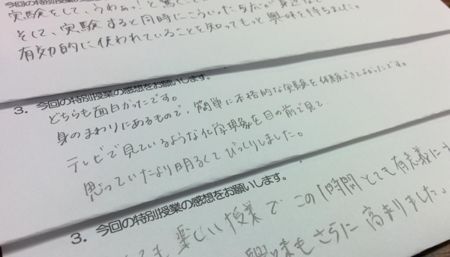 今回の特別授業の感想をお願いします。
実験をして、うわぁっ！と驚
そして、実験すると同時にこういった
有効的に使われていることを知ってもっと興味を持ちました。
3. 今回の特別授業の感想をお願いします。
どちらも面白かったです。
身のまわりにあるもので、簡単に本格的な実験を体験できてよかったです。
テレビで見ているような化学現象を目の前で見て
思っていたより明るくてびっくりしました。
3. 今回の特別授業の感想をお願いします。
楽しい授業で この1時間とても有意義に
興味もさらに高まりました。